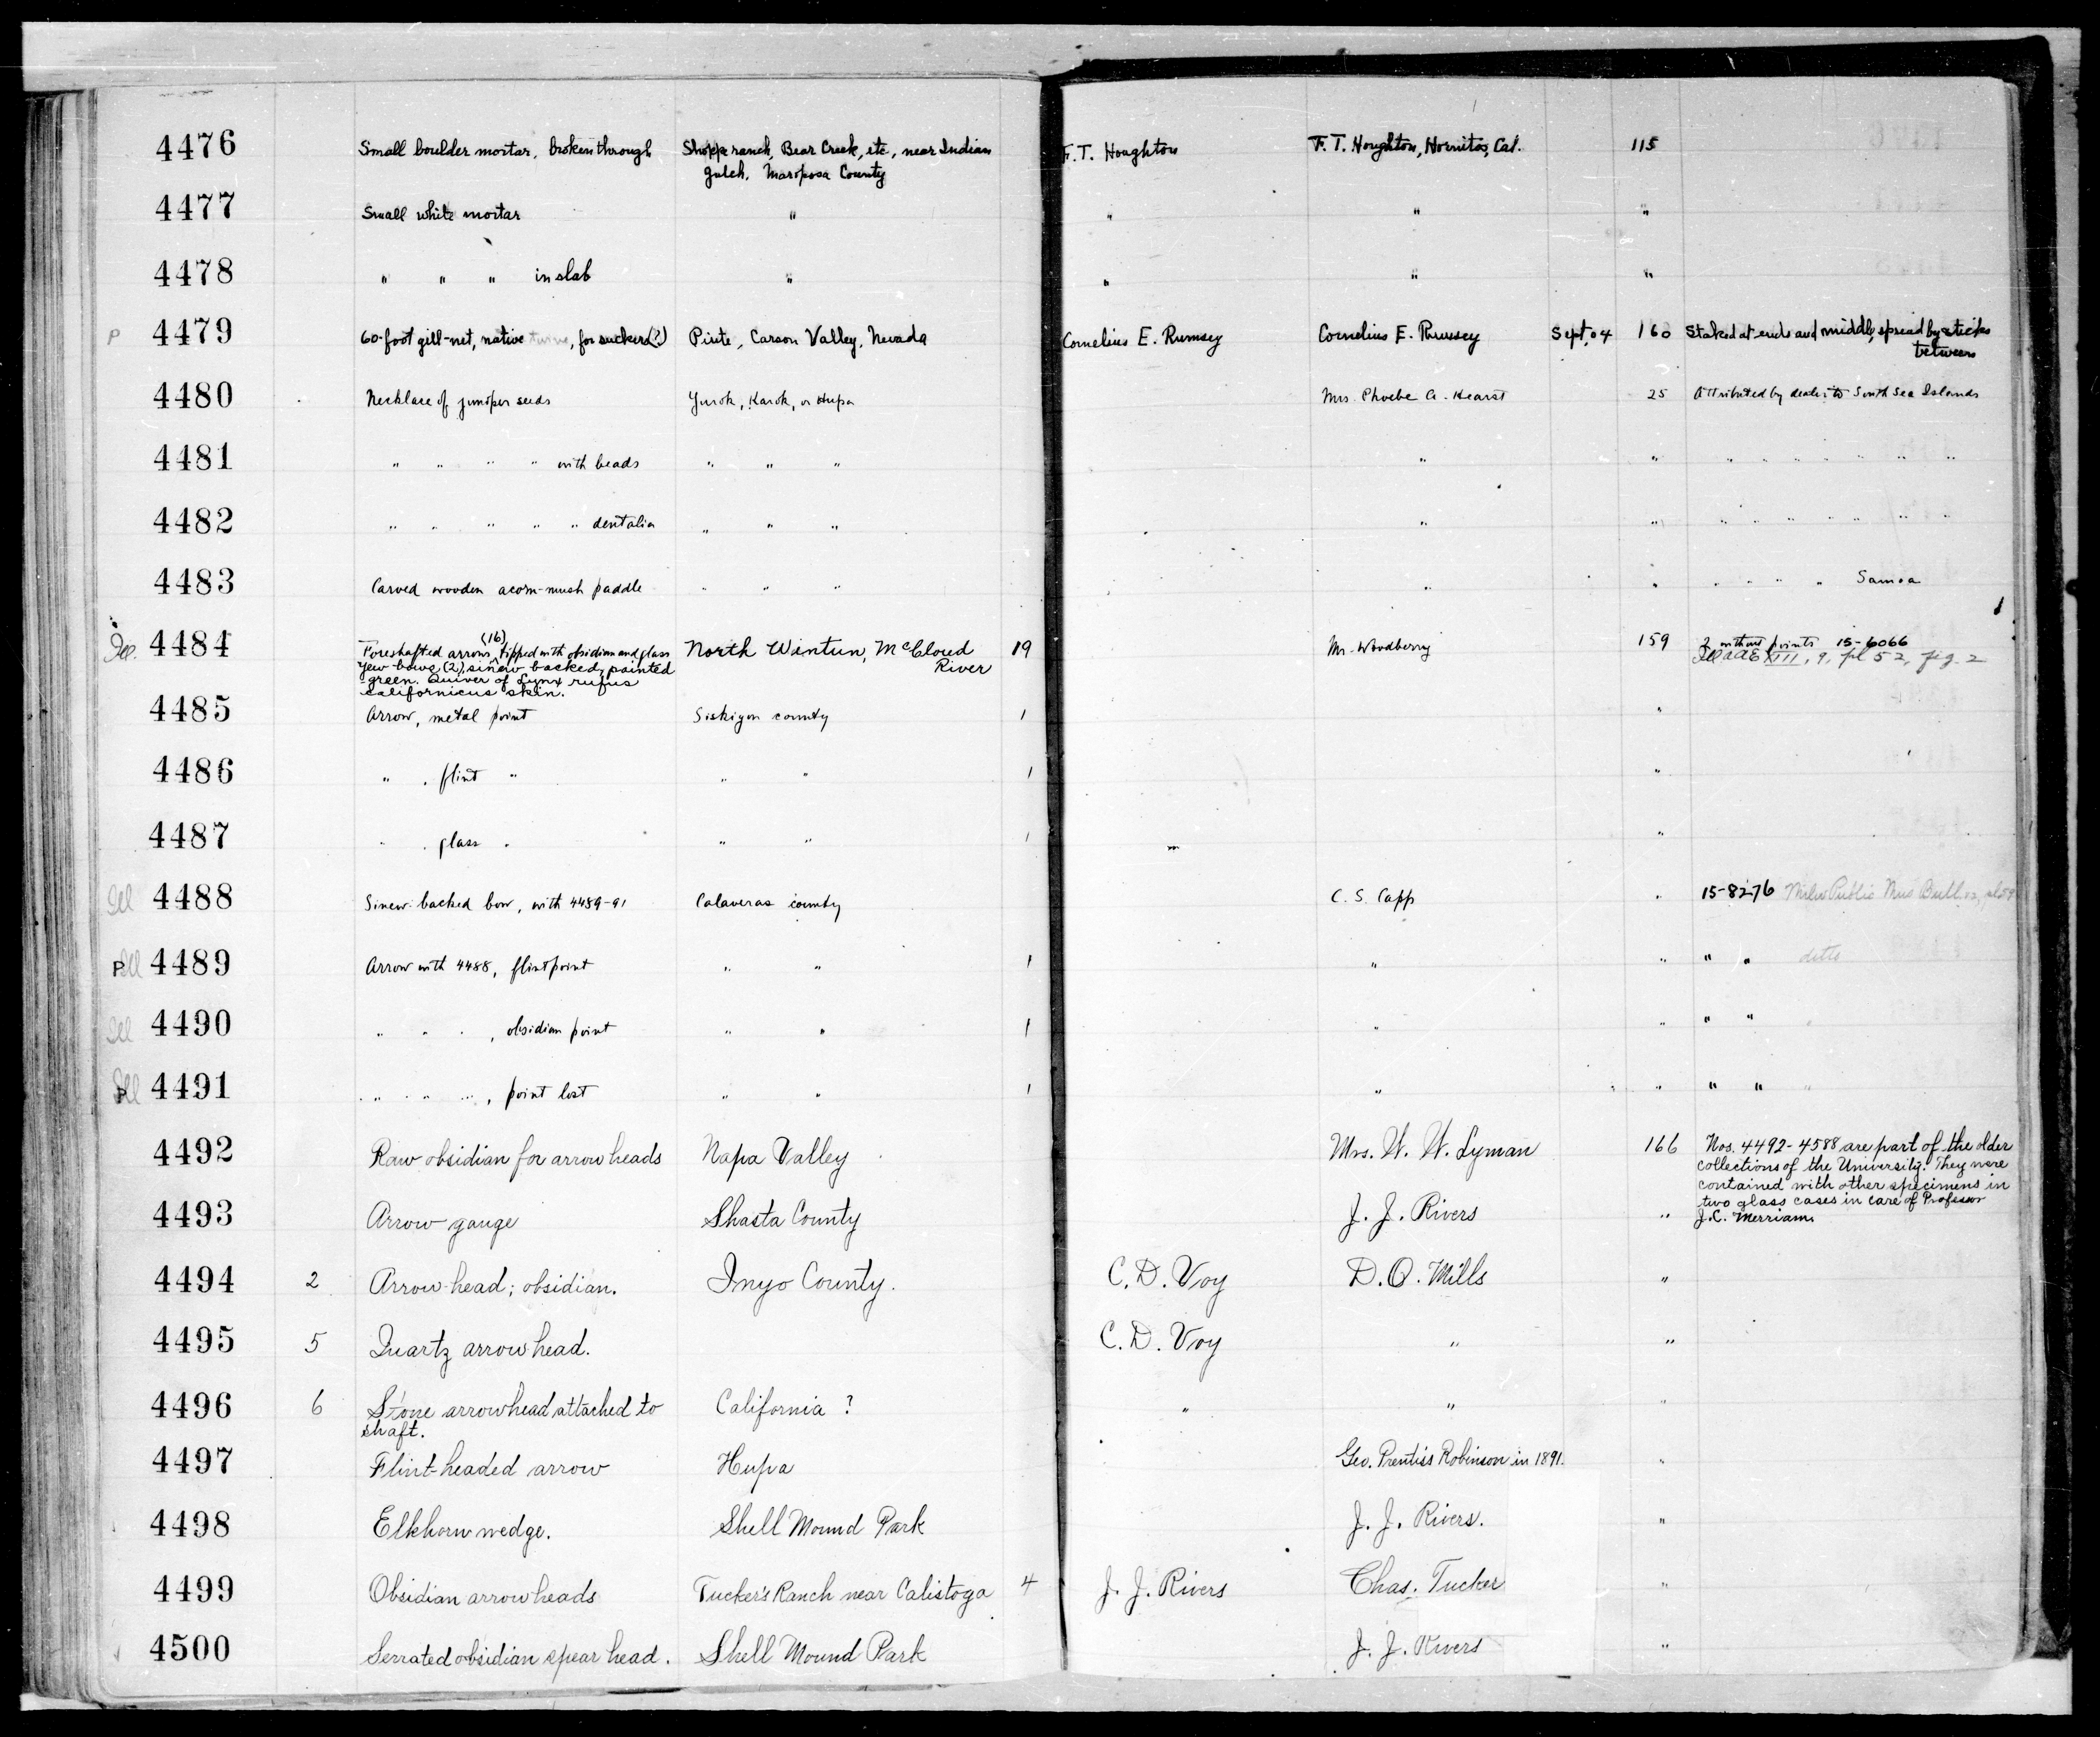 4476 Small boulder mortar, broken through Shopp ranch, Bear Creek, etc., near Indian F. T. Houghton F. T. Houghton, Hornitos, Cal. 115
gulch. Mariposa County
4477 Small white mortar " " " "
4478 " " " in slab " " " "
P 4479 60-foot gill-net, native twine, for suckers(?) Piute, Carson Valley, Nevada Cornelius E. Rumsey Cornelius E. Rumsey Sept. 04 160 Staked at ends and middle, spread by sticks
between
4480 Necklace of juniper seeds Yurok, Karok, or Hupa Mrs. Phoebe A. Hearst 25 Attributed by dealer to South Sea Islands
4481 " " " " with beads " " " " " " " " " " " "
4482 " " " " " dentalia " " " " " " " " " " " "
4483 Carved wooden acorn-mush paddle " " " " " " " " " Samoa
Ill. 4484 Foreshafted arrows (16), tipped with obsidian and glass North Wintun, McCloud 19 Mr. Woodberry 159 2 without points 15-6066
Yew bows (2), sinew backed, painted River Ill AAE XIII, 9, pl 52, fig. 2
green. Quiver of Lynx rufus
californicus skin.
4485 Arrow, metal point Siskiyou county 1 "
4486 " , flint " " " 1 "
4487 " , glass " " " 1 "
Ill 4488 Sinew-backed bow, with 4489-91 Calaveras county C. S. Capp " 15-8276 Milw Public Mus Bull
P Ill 4489 Arrow with 4488, flint point " " 1 " " " " ditto
Ill 4490 " " " , obsidian point " " 1 " " " " "
P Ill 4491 " " " , point lost " " 1 " " " " "
4492 Raw obsidian for arrow heads Napa Valley Mrs. W. W. Lyman 166 Nos. 4492-4588 are part of the older
collections of the University. They were
contained with other specimens in
two glass cases in care of Professor
4493 Arrow gauge Shasta County J. J. Rivers " J. C. Merriam.
4494 2 Arrow-head; obsidian. Inyo County. C. D. Voy D. O. Mills "
4495 5 Quartz arrow head. C. D. Voy " "
4496 6 Stone arrowhead attached to California ? " " "
shaft.
4497 Flint-headed arrow Hupa Geo. Prentiss Robinson in 1891. "
4498 Elkhorn wedge. Shell Mound Park J. J. Rivers. "
4499 Obsidian arrow heads Tucker's Ranch near Calistoga 4 J. J. Rivers Chas. Tucker "
4500 Serrated obsidian spear head. Shell Mound Park J. J. Rivers "